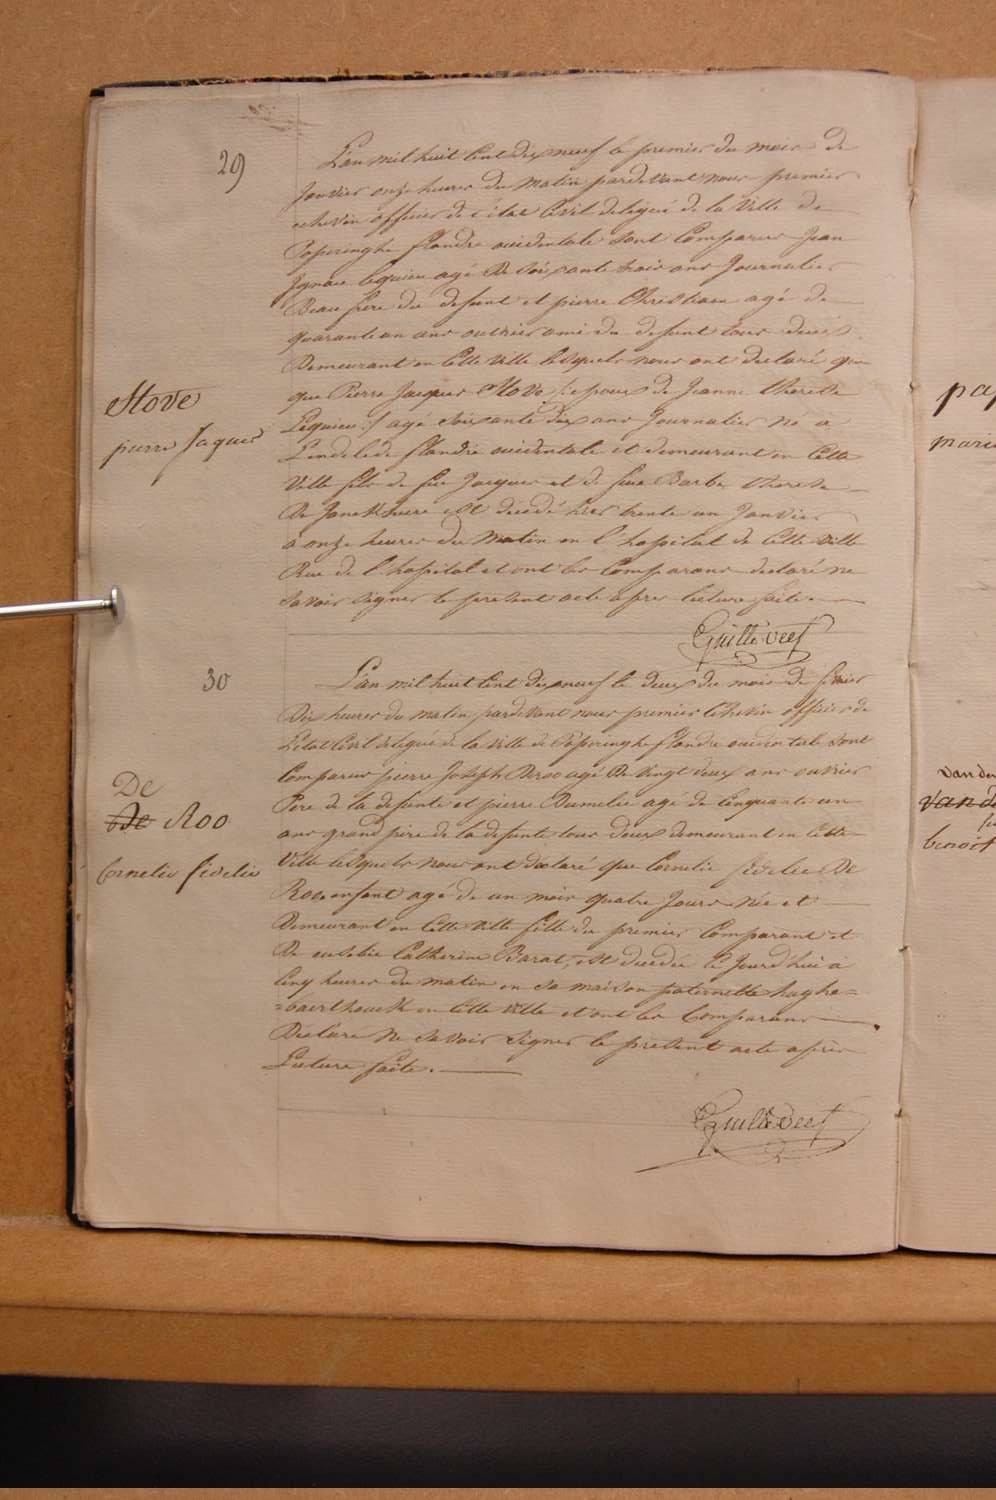 29
L'an mil huit Cent dix neuf le premier du mois de
Janvier onze heures du matin pardevant nous premier
echevin officier de l'état Civil delegué de la Ville de
Poperinghe flandre occidentale sont Comparus Jean
Ignace Lequieu agé de Soixante trois ans Journalier
Beau frere du defunt et pierre Christiaen agé de
quarante un ans ouvrier ami du defunt tous deux
Demeurant en Cette Ville lesquels nous ont declaré que
que Pierre Jacques Stove /: epoux de Jeanne therese
Lequieu :/ agé Soixante dix ans Journalier né a
Lendelede flandre occidentale et demeurant en Cette
Ville fils de feu Jacques et de feue Barbe therese
De est décédé hier trente un Janvier
a onze heures du Matin en l'hospital de Cette Ville
Rue de l'hospital et ont les Comparans declaré ne
Savoir Signer le present acte apres lecture faite.
Stove
pierre Jaques
30
L'an mil huit Cent dix neuf le deux du mois de fevrier
Dix heures du matin pardevant nous premier Echevin officier de
L'état Civil delegué de la Ville de Poperinghe flandre occidentale sont
Comparus pierre Joseph Deroo agé de Vingt deux ans ouvrier
Pere de la defunte et pierre Dumelie agé de Cinquante un
ans grand pere de la defunte tous deux demeurant en Cette
Ville lesquels nous ont declaré que Cornelie fidelie De
Roo enfant agé de un mois quatre Jours née et
Demeurant en Cette Ville fille du premier Comparant et
De eusebie Catherine Barat, est decedée Ce Jourd'hui à
Cinq heures du matin en sa maison paternelle haghe=
=baerthouck en Cette Ville et ont les Comparans
Declaré Ne Savoir Signer le present acte après
Lecture faite.
De
De Roo
Cornelie fidelie
pap
marie
van der
van d
benoit